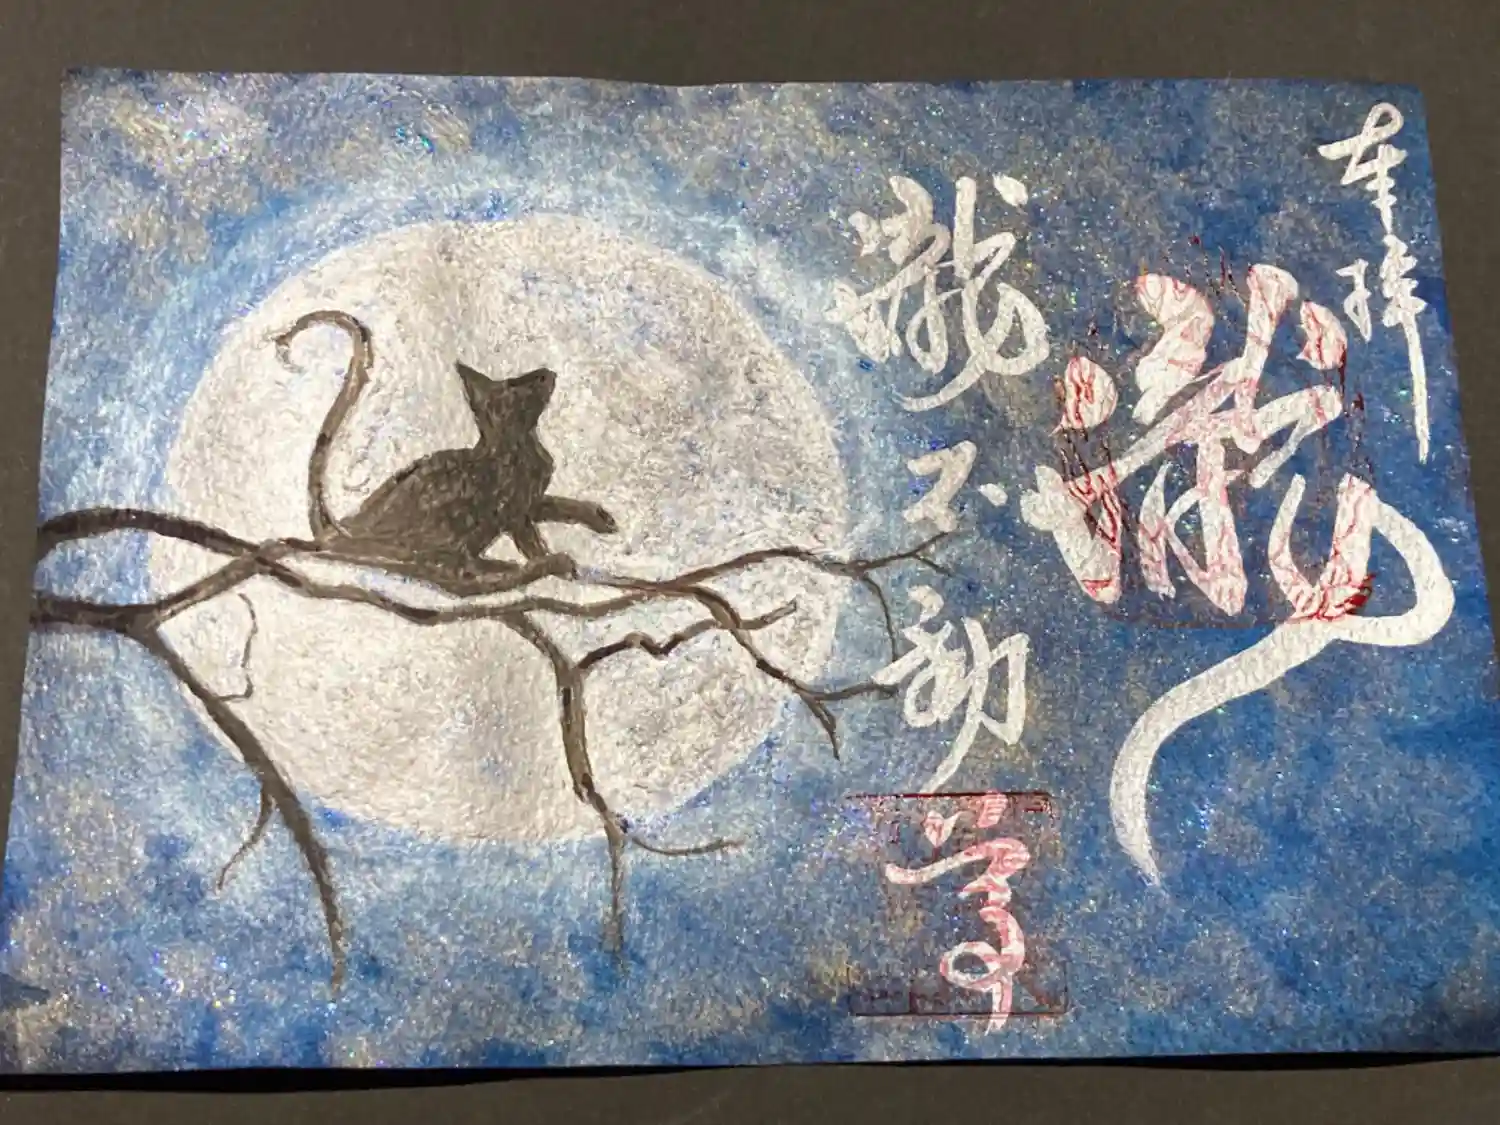 奉拝
瀧
瀧不動尊